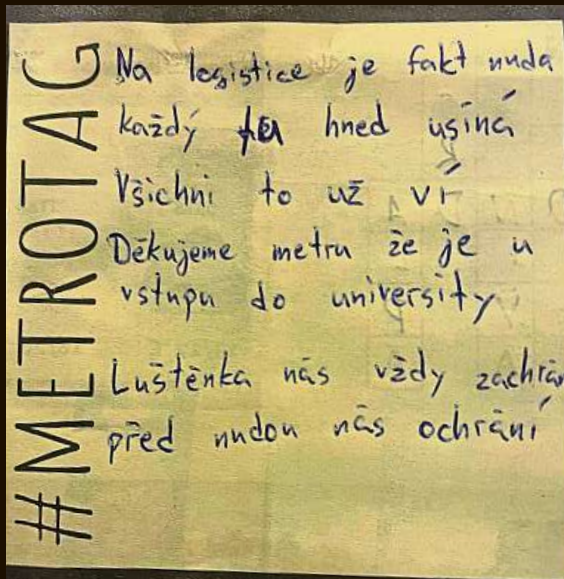 #METROTAG
Na legistice je fakt nuda
každý tu hned usíná
Všichni to už ví
Děkujeme metru že je u
vstupu do university
Luštěnka nás vždy zachrán
před nudou nás ochrání